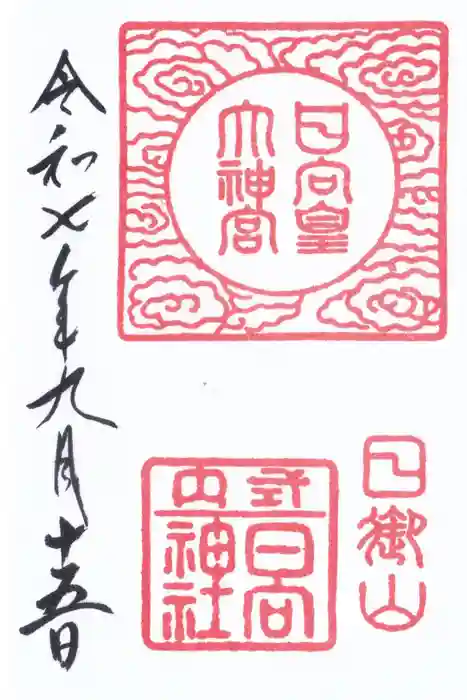 日向皇
大神宮
日御山
式内
日向
神社
令和七年九月十五日